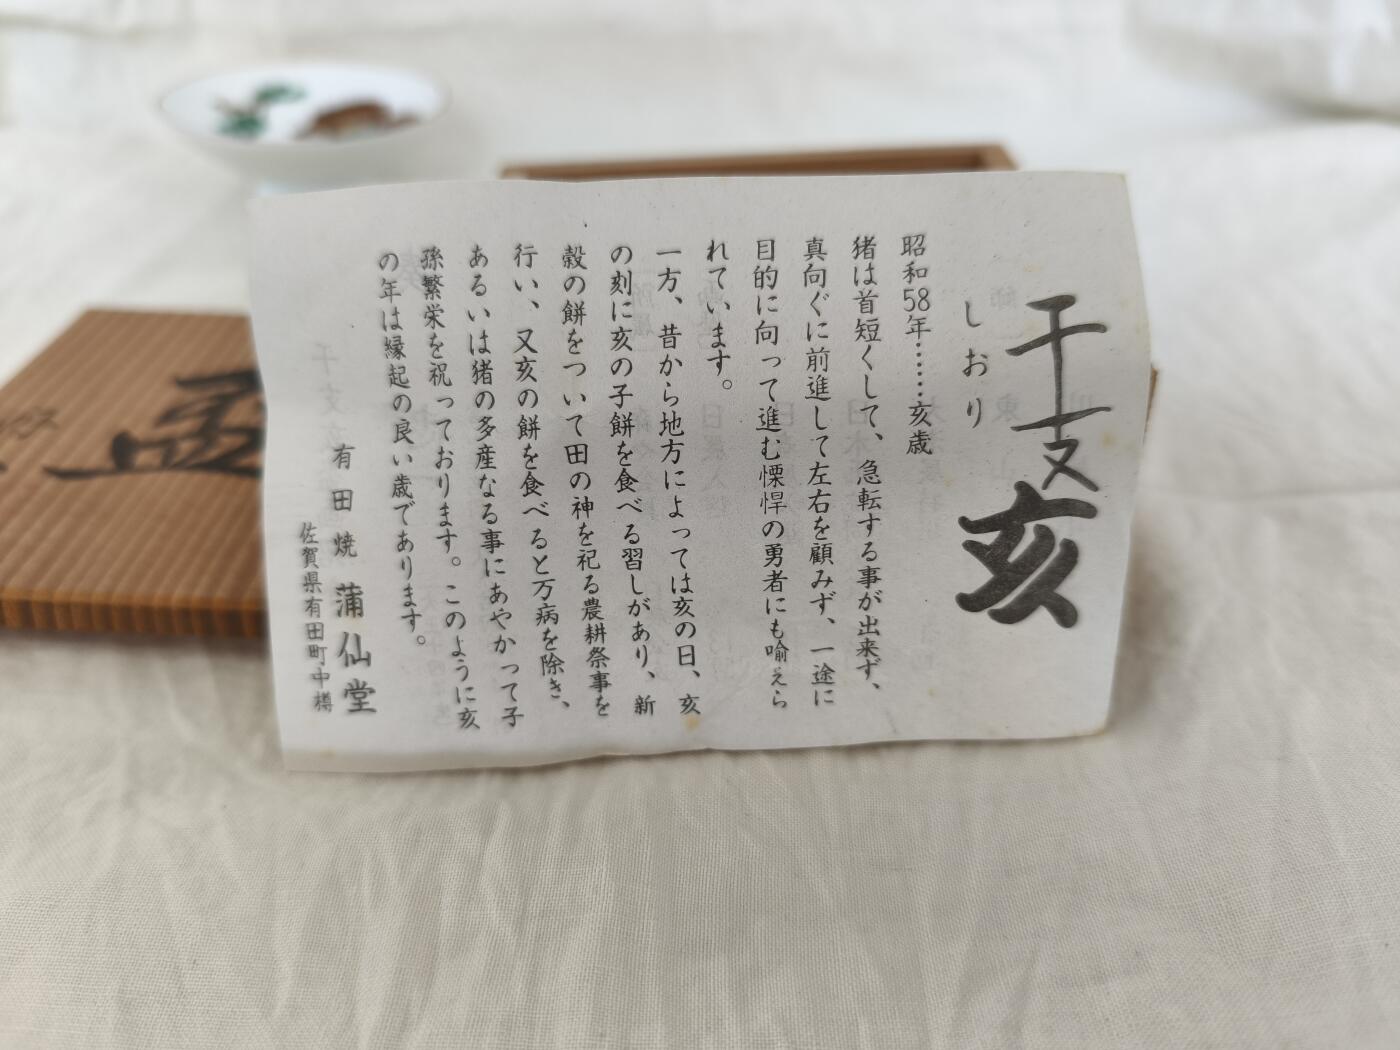 干支亥
しおり
昭和58年……亥歳
猪は首短くして、急転する事が出来ず、
真向ぐに前進して左右を顧みず、一途に
目的に向って進む慓悍の勇者にも喩えら
れています。
一方、昔から地方によっては亥の日、亥
の刻に亥の子餅を食べる習しがあり、新
穀の餅をついて田の神を祀る農耕祭事を
行い、又亥の餅を食べると万病を除き、
あるいは猪の多産なる事にあやかって子
孫繁栄を祝っております。このように亥
の年は縁起の良い歳であります。
有田焼 蒲仙堂
佐賀県有田町中樽
盃